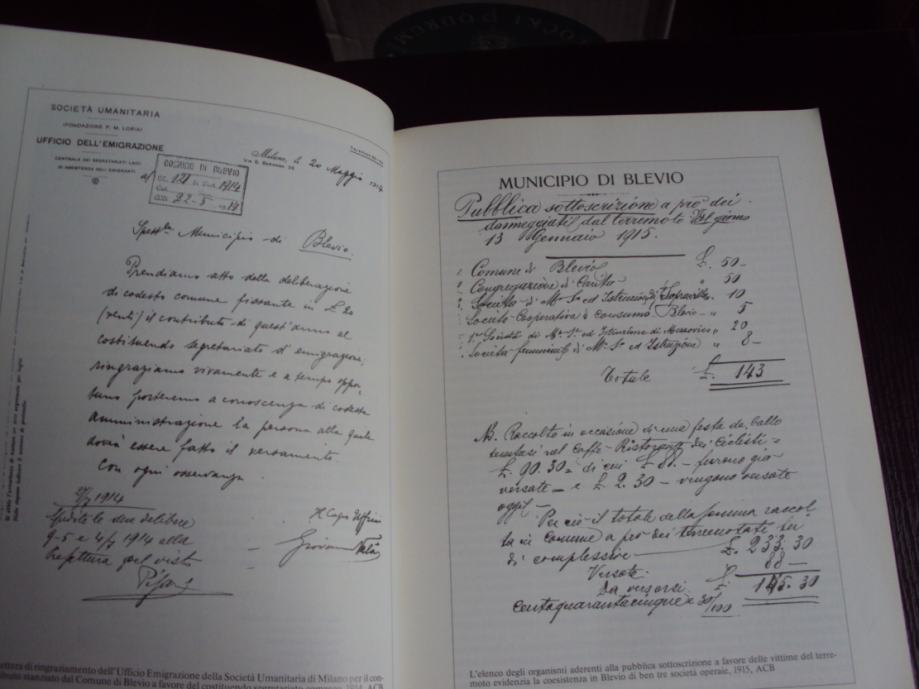 SOCIETÀ UMANITARIA
(FONDAZIONE P. M. LORIA)
UFFICIO DELL'EMIGRAZIONE
CENTRALE DEI SEGRETARIATI LAICI
DI ASSISTENZA DEGLI EMIGRANTI
Milano, li 20 Maggio 1914
COMUNE DI BLEVIO
121 1914
22-5 14
Spett.le Municipio di Blevio
Prendiamo atto della deliberazione
di codesto comune fissante in L 20
(venti) il contributo di quest'anno al
costituendo segretariato d'emigrazione;
ringraziamo vivamente e a tempo oppor-
tuno porteremo a conoscenza di codesta
amministrazione la persona alla quale
dovrà essere fatto il versamento.
Con ogni osservanza
Il Capo Ufficio
1914
Spedite le due delibere
9-5 e 4/7 1914 alla
Prefettura pel visto
ettera di ringraziamento dell'Ufficio Emigrazione della Società Umanitaria di Milano per il con-
ibuto stanziato dal Comune di Blevio a favore del costituendo segretariato 1914, ACB
MUNICIPIO DI BLEVIO
Pubblica sottoscrizione a pro dei
danneggiati dal terremoto del giorno
13 Gennaio 1915.
Comune di Blevio £. 50-
Congregazione di Carità " 50
Società di M° S° ed Istruzione di Sopravilla. 10
Società Cooperativa di Consumo Blevio " 5
Società di M° S° ed Istruzione di " 20
Società femminile di M° S° ed Istruzione " 8-
Totale £. 143
NB. Raccolto in occasione di una festa da ballo
tenutasi nel Caffè-Ristorante dei Ciclisti =
£. 90.30 = di cui £ 88.- furono già
versate - e £ 2.30 - vengono versate
oggi -
Perciò il totale della somma raccol
ta in comune a pro dei terremotati è
di complessive £. 233.30
Versate 88-
Da versarsi £. 145.30
Centoquarantacinque e 30/100
L'elenco degli organismi aderenti alla pubblica sottoscrizione a favore delle vittime del terre-
moto evidenzia la coesistenza in Blevio di ben tre società operaie, 1915, ACB